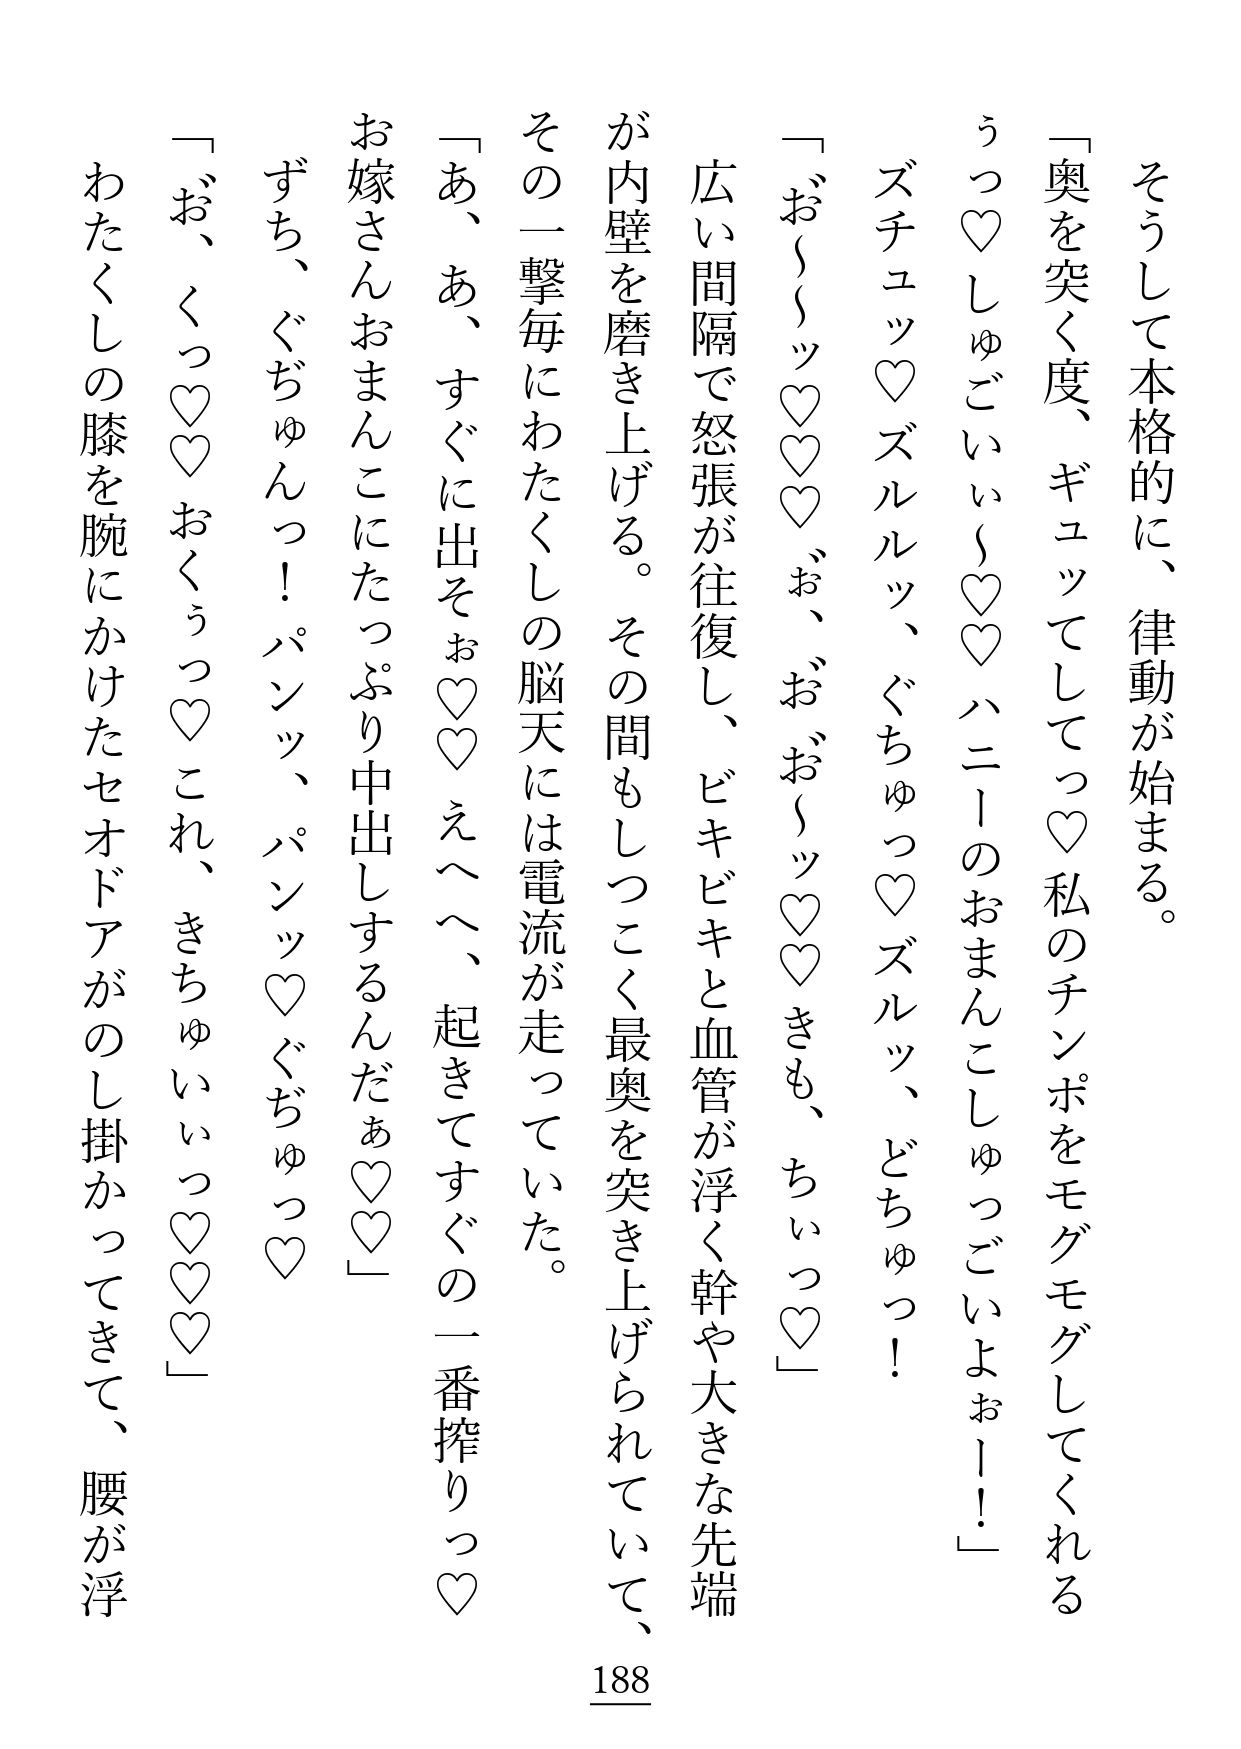 そうして本格的に、律動が始まる。
「奥を突く度、ギュッてしてっ♡私のチンポをモグモグしてくれる
ぅっ♡しゅごいぃ～♡♡ハニーのおまんこしゅっごいよぉー！」
ズチュッ♡ズルルッ、ぐちゅっ♡ズルッ、どちゅっ！
「お゛～～ッ♡♡♡ぉ゛、お゛お゛～ッ♡♡きも、ちぃっ♡」
広い間隔で怒張が往復し、ビキビキと血管が浮く幹や大きな先端
が内壁を磨き上げる。その間もしつこく最奥を突き上げられていて、
その一撃毎にわたくしの脳天には電流が走っていた。
「あ、あ、すぐに出そぉ♡♡えへへ、起きてすぐの一番搾りっ♡
お嫁さんおまんこにたっぷり中出しするんだぁ♡♡」
ずち、ぐぢゅんっ！パンッ、パンッ♡ぐぢゅっ♡
「お゛、くっ♡♡おくぅっ♡これ、きちゅいぃっ♡♡♡」
わたくしの膝を腕にかけたセオドアがのし掛かってきて、腰が浮
188